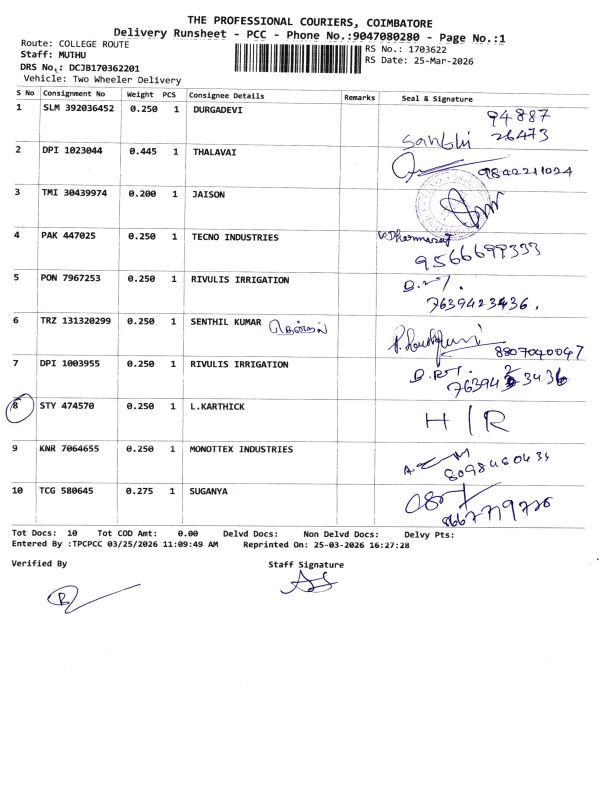 THE PROFESSIONAL COURIERS, COIMBATORE
Delivery Runsheet - PCC - Phone No.:9047080280 - Page No.:1
Route: COLLEGE ROUTE
RS No.: 1703622
Staff: MUTHU
RS Date: 25-Mar-2026
DRS No.: DCJB170362201
Vehicle: Two Wheeler Delivery
S No Consignment No Weight PCS Consignee Details Remarks Seal & Signature
1 SLM 392036452 0.250 1 DURGADEVI
94887
26473
2 DPI 1023044 0.445 1 THALAVAI 9842211024
3 TMI 30439974 0.200 1 JAISON
4 PAK 447025 0.250 1 TECNO INDUSTRIES
9566699333
5 PON 7967253 0.250 1 RIVULIS IRRIGATION
7639423436.
6 TRZ 131320299 0.250 1 SENTHIL KUMAR
8807040047
7 DPI 1003955 0.250 1 RIVULIS IRRIGATION
8 STY 474570 0.250 1 L.KARTHICK H/R
9 KNR 7064655 0.250 1 MONOTTEX INDUSTRIES
10 TCG 580645 0.275 1 SUGANYA
Tot Docs: 10 Tot COD Amt: 0.00 Delvd Docs: Non Delvd Docs: Delvy Pts:
Entered By :TPCPCC 03/25/2026 11:09:49 AM Reprinted On: 25-03-2026 16:27:28
Verified By Staff Signature